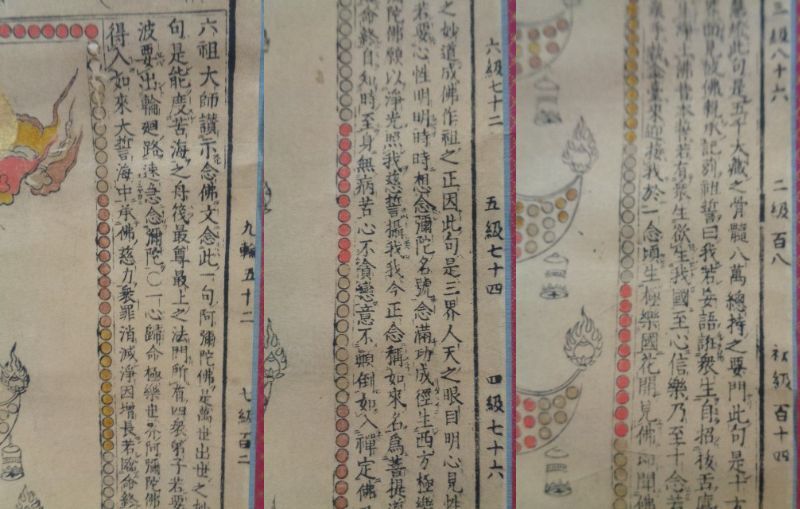 九輪五十二 七級百二
六祖大師讚示念佛文念此一句阿彌陀佛是萬世出世之妙
句是能度苦海之舟筏最尊最上之法門所有四衆弟子若要
波要出輪廻路速急念彌陀〇一心歸命極樂世界阿彌陀佛
得入如來大誓海中承佛慈力衆罪消滅淨因增長若臨命終
六級七十二 五級七十四 四級七十六
之妙道成佛作祖之正因此句是三界人天之眼目明心見性
若要心性明明時時想念彌陀名號念滿功成徑生西方極樂
陀佛願以淨光照我慈誓攝我我今正念稱如來名爲菩提道
命終自知時至身無病苦心不貪戀意不顛倒如入禪定佛
三級八十六 二級百八 初級百十四
此句是五千大藏之骨髓八萬總持之要門此句是十方
界面見彼佛親承記莂祖誓曰我若妄語誑衆生自招拔舌塵
生淨土佛昔本誓若有衆生欲生我國至心信樂乃至十念若
衆手執金臺來迎接我於一念頃生極樂國花開見佛即聞佛